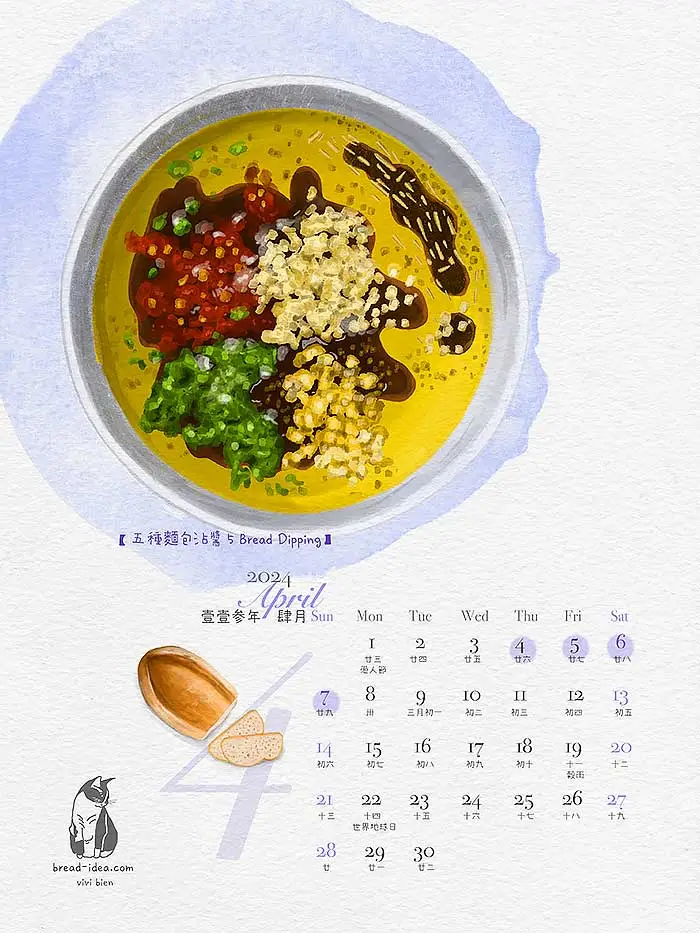 【 五種麵包沾醬 5 Bread Dipping】
2024
April
壹壹參年 肆月
Sun Mon Tue Wed Thu Fri Sat
1 2 3 4 5 6
廿三 廿四 廿五 廿六 廿七 廿八
愚人節
7 8 9 10 11 12 13
廿九 卅 三月初一 初二 初三 初四 初五
14 15 16 17 18 19 20
初六 初七 初八 初九 初十 十一 十二
穀雨
21 22 23 24 25 26 27
十三 十四 十五 十六 十七 十八 十九
世界地球日
28 29 30
廿 廿一 廿二
4
bread-idea.com
vivi bien